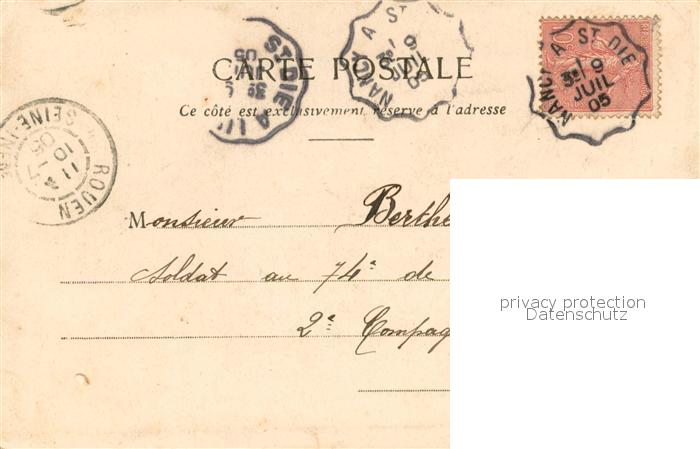 NANCY A ST DIE
3º 9
JUIL
05
NANCY A ST DIE
ST DIE A
05
CARTE POSTALE
Ce côté est exclusivement réservé à l'adresse
ROUEN
SEINE-INFRE
11
10
05
Monsieur Berthe
Soldat au 74e de
2e Compag
privacy protection
Datenschutz